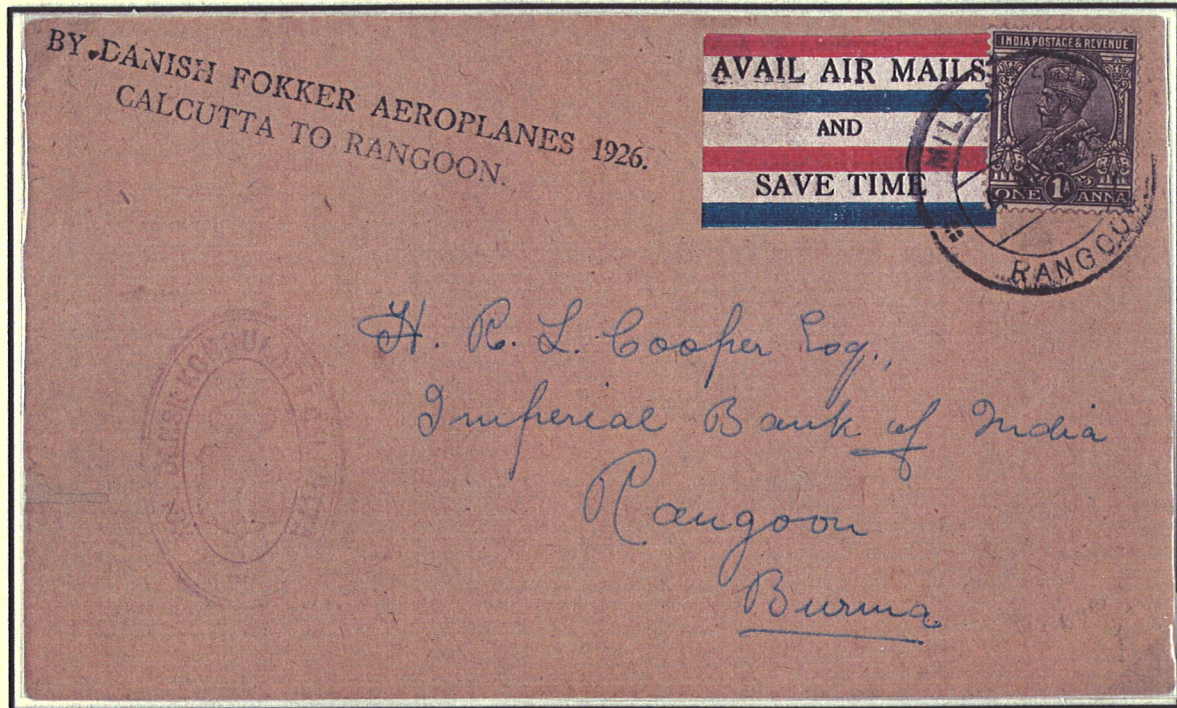 BY DANISH FOKKER AEROPLANES 1926.
CALCUTTA TO RANGOON.
AVAIL AIR MAILS
AND
SAVE TIME
INDIA POSTAGE & REVENUE
ONE 1A ANNA
RANGOO
H. R. L. Cooper Esq.,
Imperial Bank of India
Rangoon
Burma